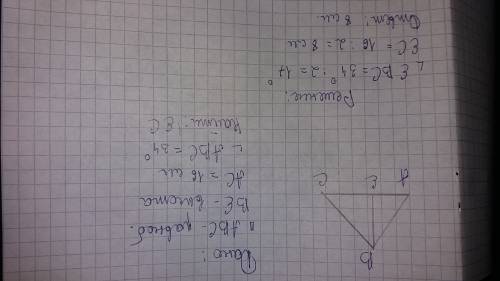 Дано:
△ ABC - равноб.
BE - высота
AC = 16 см
∟ ABC = 34°
Найти: EC
B
A E C
Решение:
∟ EBC = 34° : 2 = 17°
EC = 16 : 2 = 8 см
Ответ: 8 см